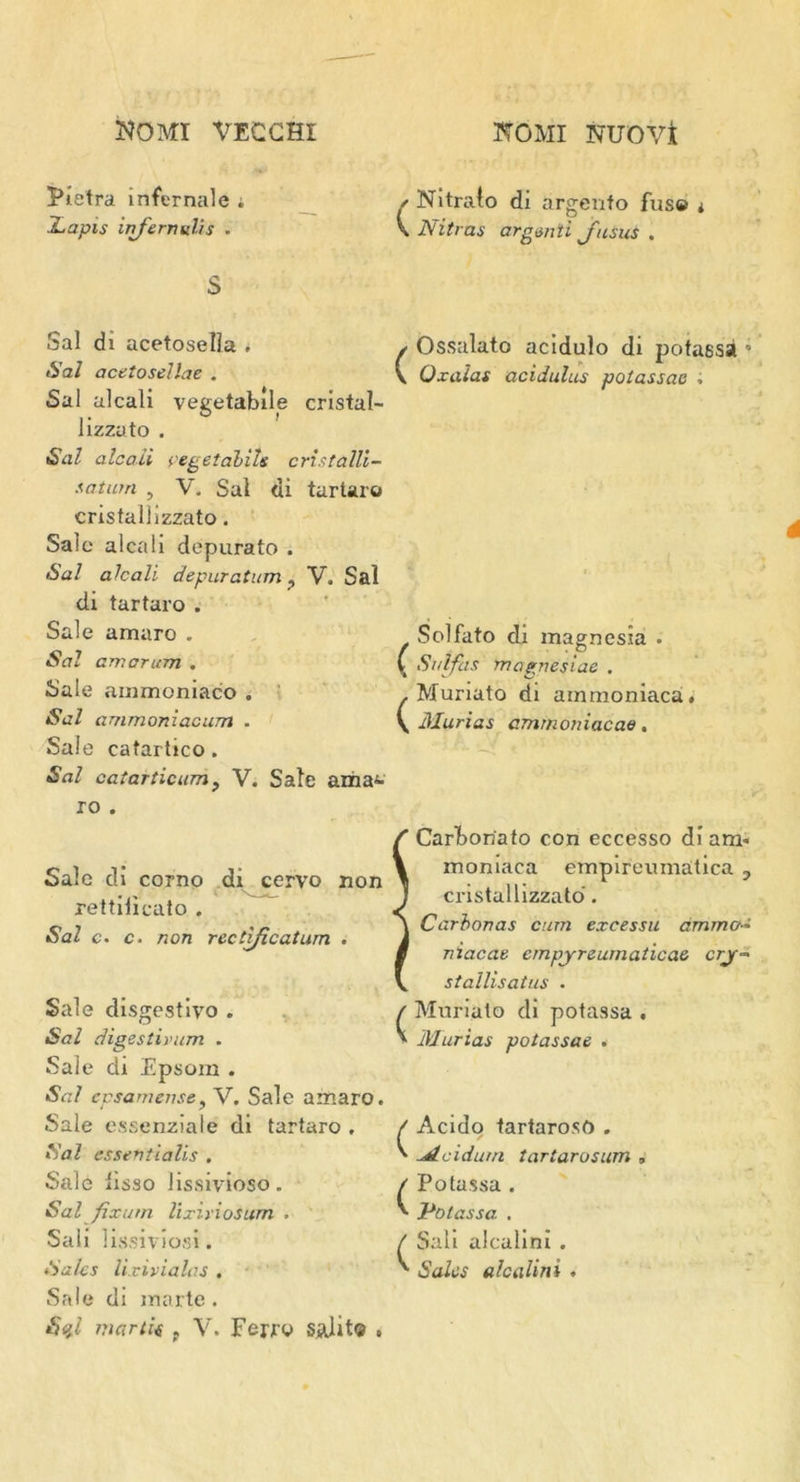 NOMI VECCHI
NOMI NUOVI
Pietra infernale .
Lapis infernalis .
Nitrato di argento fuso .
Nitras argenti fusus .
S
Sal di acetosella .
Sal acetosellae .
Ossalato acidulo di potassa .
Oxalas acidulus potassae .
Sal alcali vegetabile cristal-
lizzato .
Sal alcali vegetabile cristalli-
satum , V. Sal di tartaro
cristallizzato .
Sale alcali depurato .
Sal alcali depuratum , V. Sal
di tartaro .
Sale amaro .
Sal amarum .
Solfato di magnesia .
Sulfas magnesiae .
Sale ammoniaco .
Sal ammoniacum .
Muriato di ammoniaca .
Murias ammoniacae .
Sale catartico .
Sal catarticum , V. Sale ama-
ro .
Sale di corno di cervo non
rettificato .
Sal c. c. non rectificatum .
Carbonato con eccesso di am-
moniaca empireumatica ,
cristallizzato .
Carbonas cum excessu ammo-
niacae empyreumaticae cry-
stallisatus .
Sale disgestivo .
Sal digestivum .
Muriato di potassa .
Murias potassae .
Sale di Epsom .
Sal epsamense , V. Sale amaro .
Sale essenziale di tartaro .
Sal essentialis .
Acido tartaroso .
Acidum tartarosum .
Sale fisso lissivioso .
Sal fixum lixiviosum .
Potassa .
Potassa .
Sali lissiviosi .
Sales lixiviales .
Sali alcalini .
Sales alcalini .
Sale di marte .
Sal martis , V. Ferro salito .